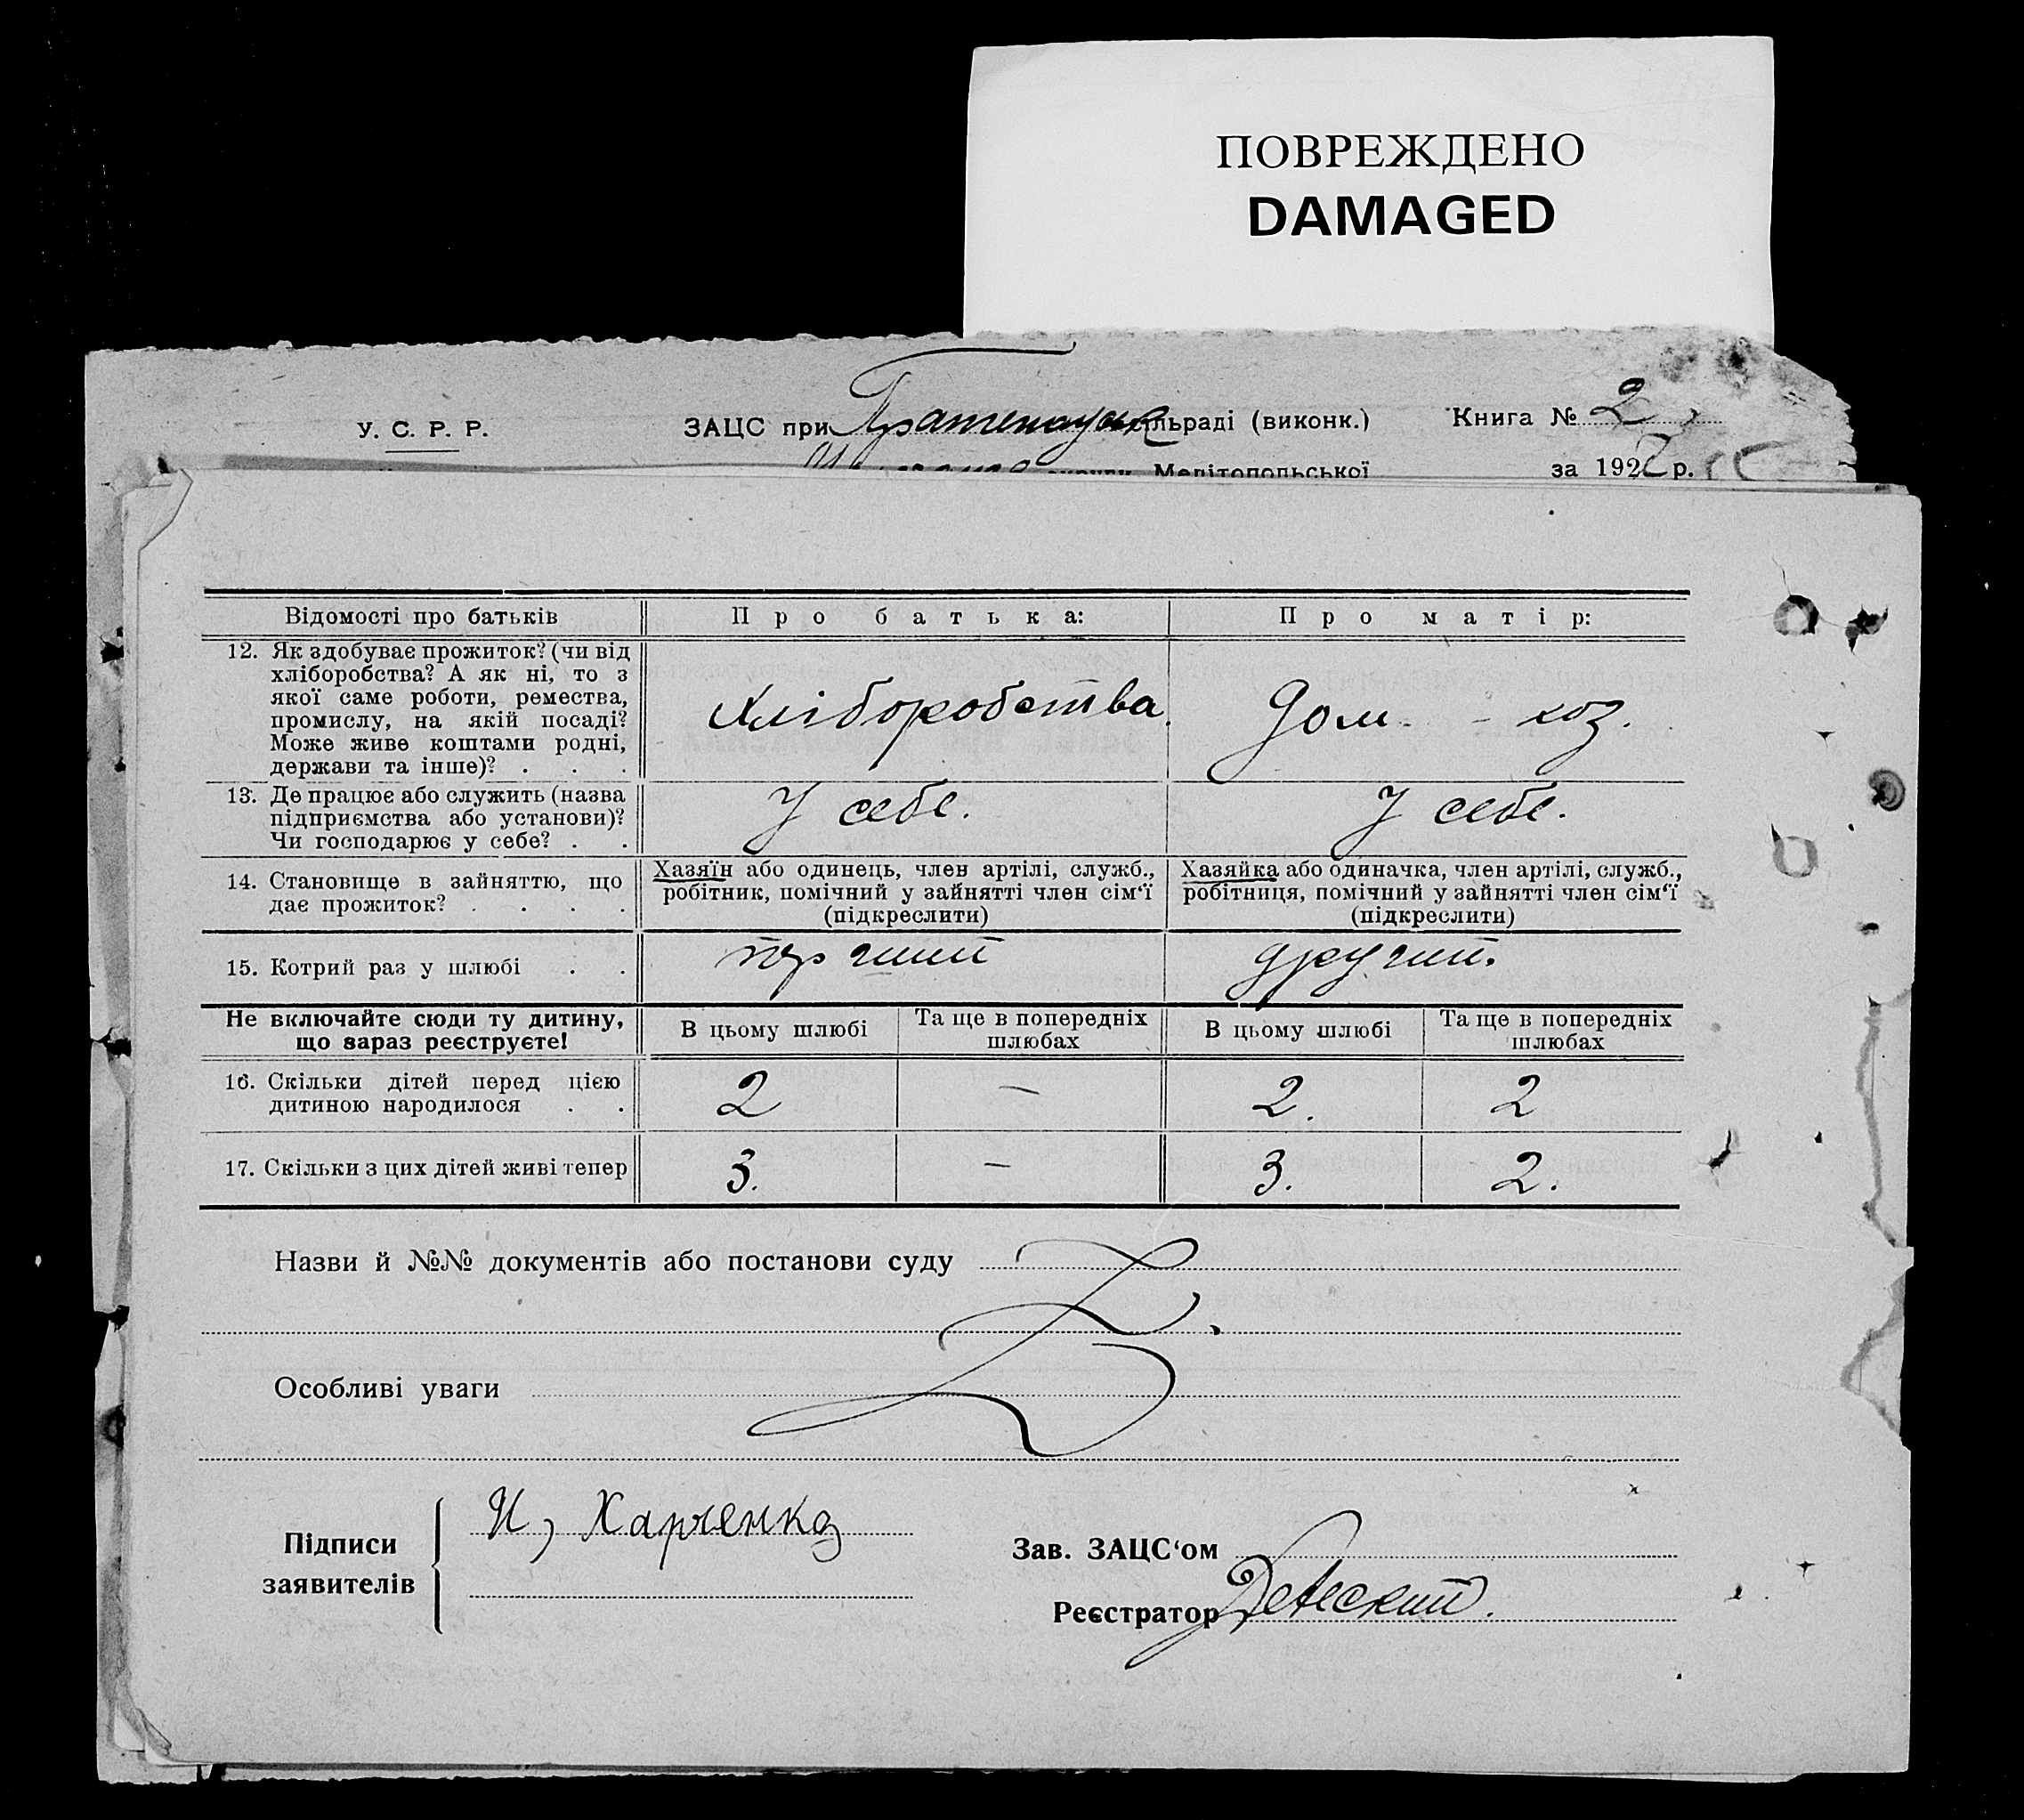 ПОВРЕЖДЕНО
DAMAGED
У. С. Р. Р.
ЗАЦС при сільраді (виконк.)
Книга № 2
округи Мелітопольської
за 192 р.
Відомості про батьків
Про батька:
Про матір:
12. Як здобуває прожиток? (чи від
хліборобства? А як ні, то з
якої саме роботи, ремества,
промислу, на якій посаді?
Може живе коштами родні,
держави та інше)? . . .
хліборобства.
Дом - хоз.
13. Де працює або служить (назва
підприємства або установи)?
Чи господарює у себе? . .
У себе.
У себе.
14. Становище в зайняттю, що
дає прожиток? . . . .
Хазяїн або одинець, член артілі, служб.,
робітник, помічний у зайнятті член сім'ї
(підкреслити)
Хазяйка або одиначка, член артілі, служб.,
робітниця, помічний у зайнятті член сім'ї
(підкреслити)
15. Котрий раз у шлюбі . .
перший
другий.
Не включайте сюди ту дитину,
що зараз реєструєте!
В цьому шлюбі
Та ще в попередніх
шлюбах
В цьому шлюбі
Та ще в попередніх
шлюбах
16. Скільки дітей перед цією
дитиною народилося . .
2 — 2. 2
17. Скільки з цих дітей живі тепер
3. — 3. 2.
Назви й №№ документів або постанови суду
Особливі уваги
Підписи
заявителів
И, Харченко
Зав. ЗАЦС'ом
Реєстратор